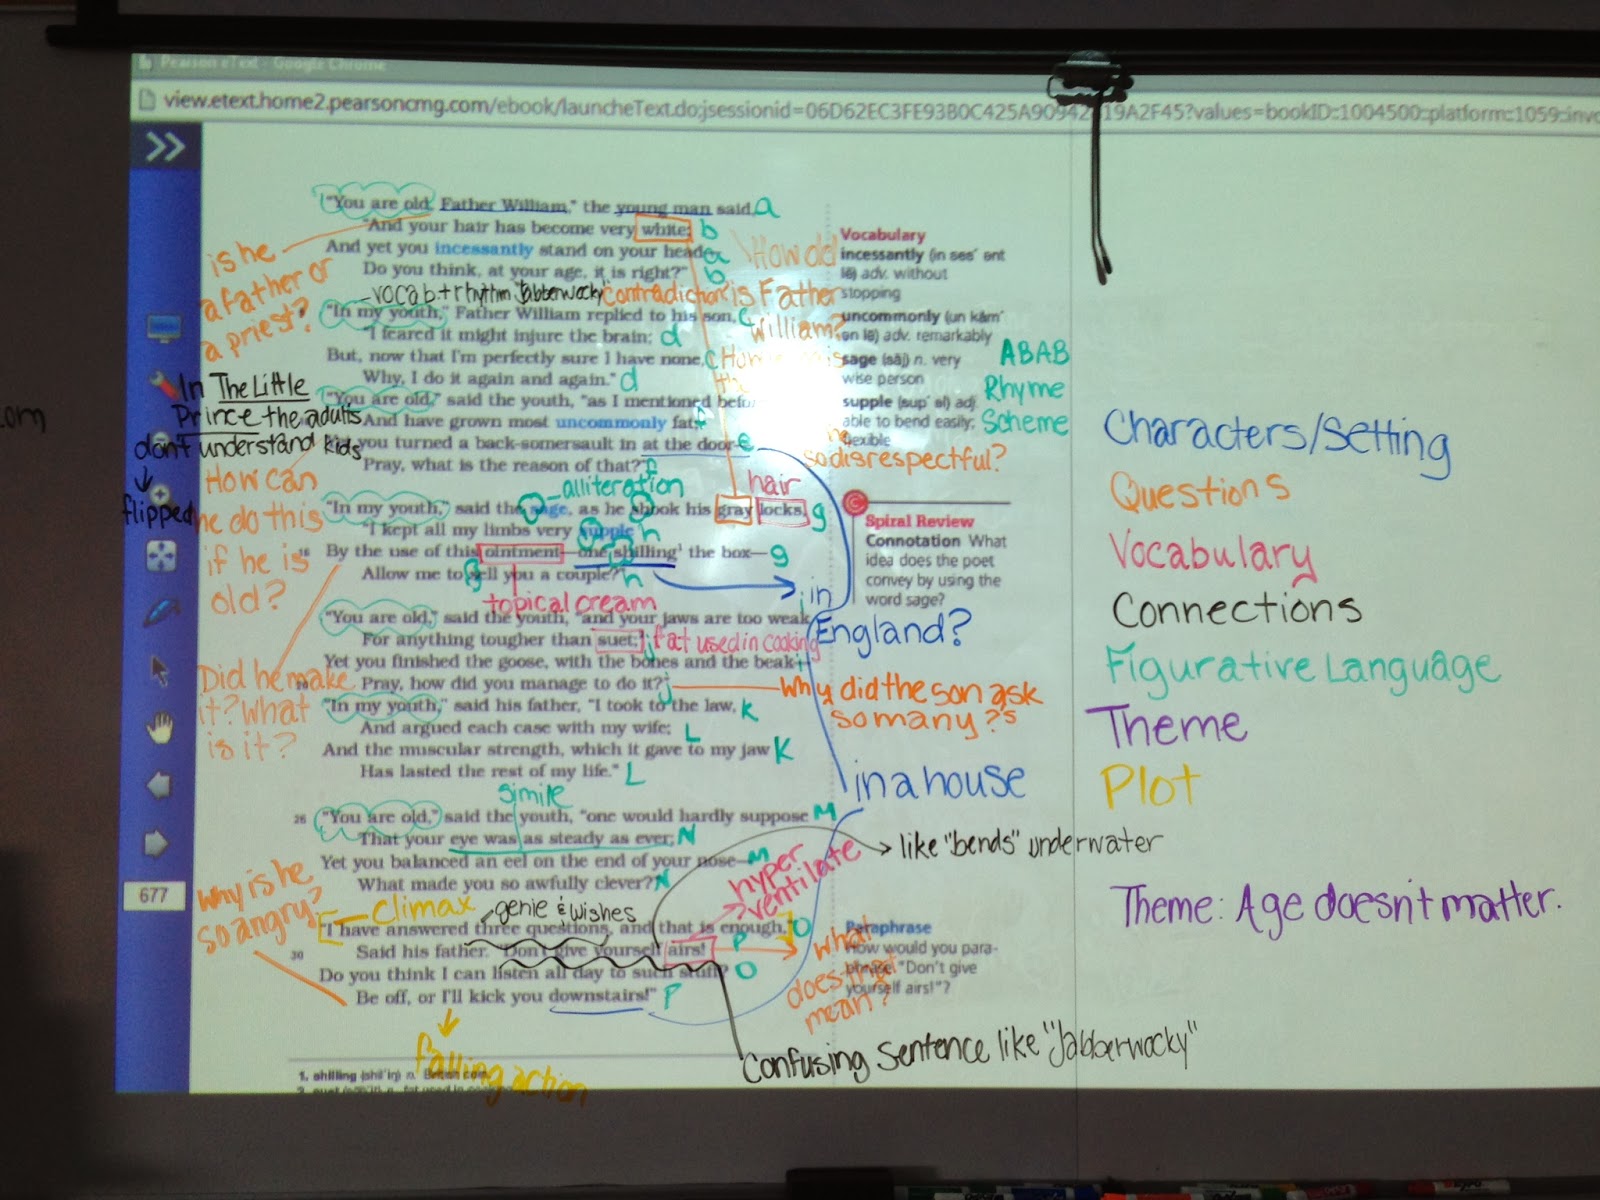 Pearson eText - Google Chrome
view.etext.home2.pearsoncmg.com/ebook/launcheText.do;jsessionid=06D62EC3FE93B0C425A90942 19A2F45?values=bookID::1004500::platform::1059::invo
.com
"You are old, Father William," the young man said, a
"And your hair has become very white; b
And yet you incessantly stand on your head a
Do you think, at your age, it is right?" b
vocab + rhythm "Jabberwocky" contradiction
"In my youth," Father William replied to his son, c
"I feared it might injure the brain; d
But, now that I'm perfectly sure I have none, c
Why, I do it again and again." d
"You are old," said the youth, "as I mentioned before
And have grown most uncommonly fat;
you turned a back-somersault in at the door e
Pray, what is the reason of that?" f
alliteration
hair
"In my youth," said the sage, as he shook his gray locks, g
"I kept all my limbs very supple h
15 By the use of this ointment—one shilling¹ the box— g
Allow me to sell you a couple?" h
topical cream
"You are old," said the youth, "and your jaws are too weak i
For anything tougher than suet; j fat used in cooking
Yet you finished the goose, with the bones and the beak i
20 Pray, how did you manage to do it? j
"In my youth," said his father, "I took to the law, k
And argued each case with my wife; L
And the muscular strength, which it gave to my jaw K
Has lasted the rest of my life." L
simile
25 "You are old," said the youth, "one would hardly suppose M
That your eye was as steady as ever; N
Yet you balanced an eel on the end of your nose— M
What made you so awfully clever? N
climax genie & wishes
"I have answered three questions, and that is enough," O
30 Said his father. "Don't give yourself airs! P
Do you think I can listen all day to such stuff? O
Be off, or I'll kick you downstairs!" P
falling action
1. shilling (shil'iŋ) n. British coin.
is he
a father or
a priest?
In The Little
Prince the adults
don't understand kids
flipped
How can
he do this
if he is
old?
Did he make
it? What
is it?
Why is he
so angry?
677
How old
is Father
William?
Vocabulary
incessantly (in ses' ənt
lē) adv. without
stopping
uncommonly (un käm'
ən lē) adv. remarkably
sage (sāj) n. very
wise person
supple (sup' əl) adj.
able to bend easily;
flexible
ABAB
Rhyme
Scheme
so disrespectful?
Spiral Review
Connotation What
idea does the poet
convey by using the
word sage?
in
England?
Why did the son ask
so many ?'s
in a house
like "bends" underwater
hyper
ventilate
what
does that
mean?
Paraphrase
How would you para-
phrase "Don't give
yourself airs!"?
Confusing sentence like "Jabberwocky"
Characters/Setting
Questions
Vocabulary
Connections
Figurative Language
Theme
Plot
Theme: Age doesn't matter.